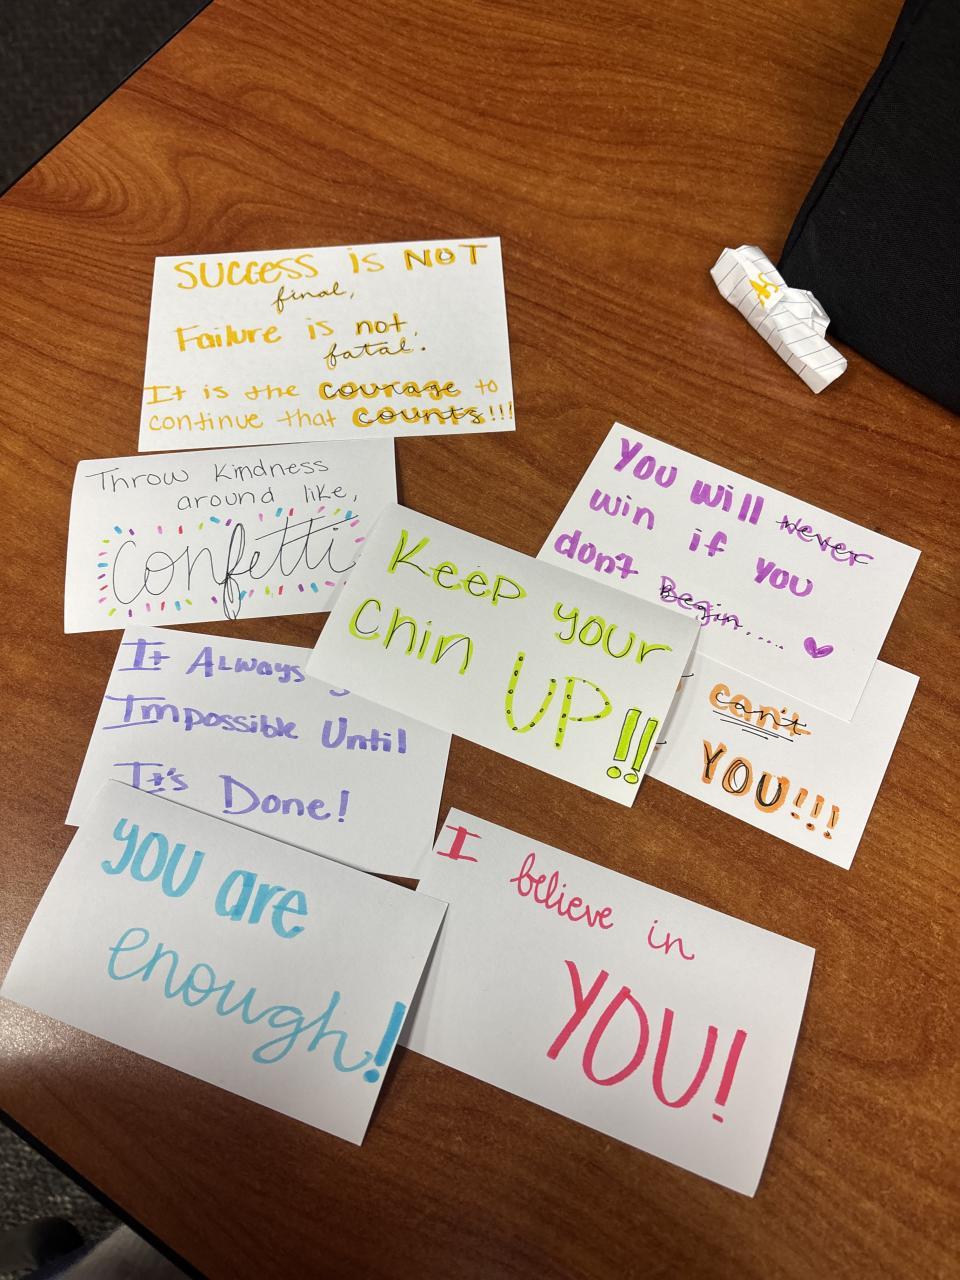 SUCCESS is NOT
final,
Failure is not,
fatal.
It is the courage to
continue that counts!!!
Throw Kindness
around like,
confetti
You will never
win if you
don't Begin.....
Keep your
Chin UP!!
can't
YOU!!!
It Always
Impossible Until
It's Done!
you are
enough!
I believe in
YOU!